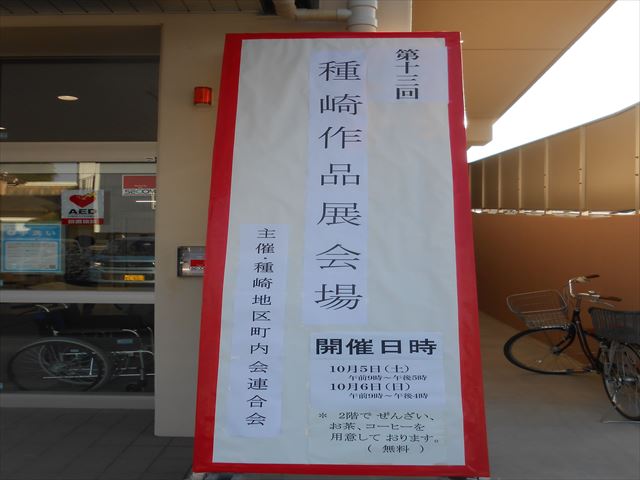 第十三回
種崎作品展会場
主催・種崎地区町内会連合会
開催日時
10月5日(土)
午前9時～午後5時
10月6日(日)
午前9時～午後4時
* 2階で ぜんざい、
お茶、コーヒーを
用意して おります。
( 無料 )
AED
SECOM